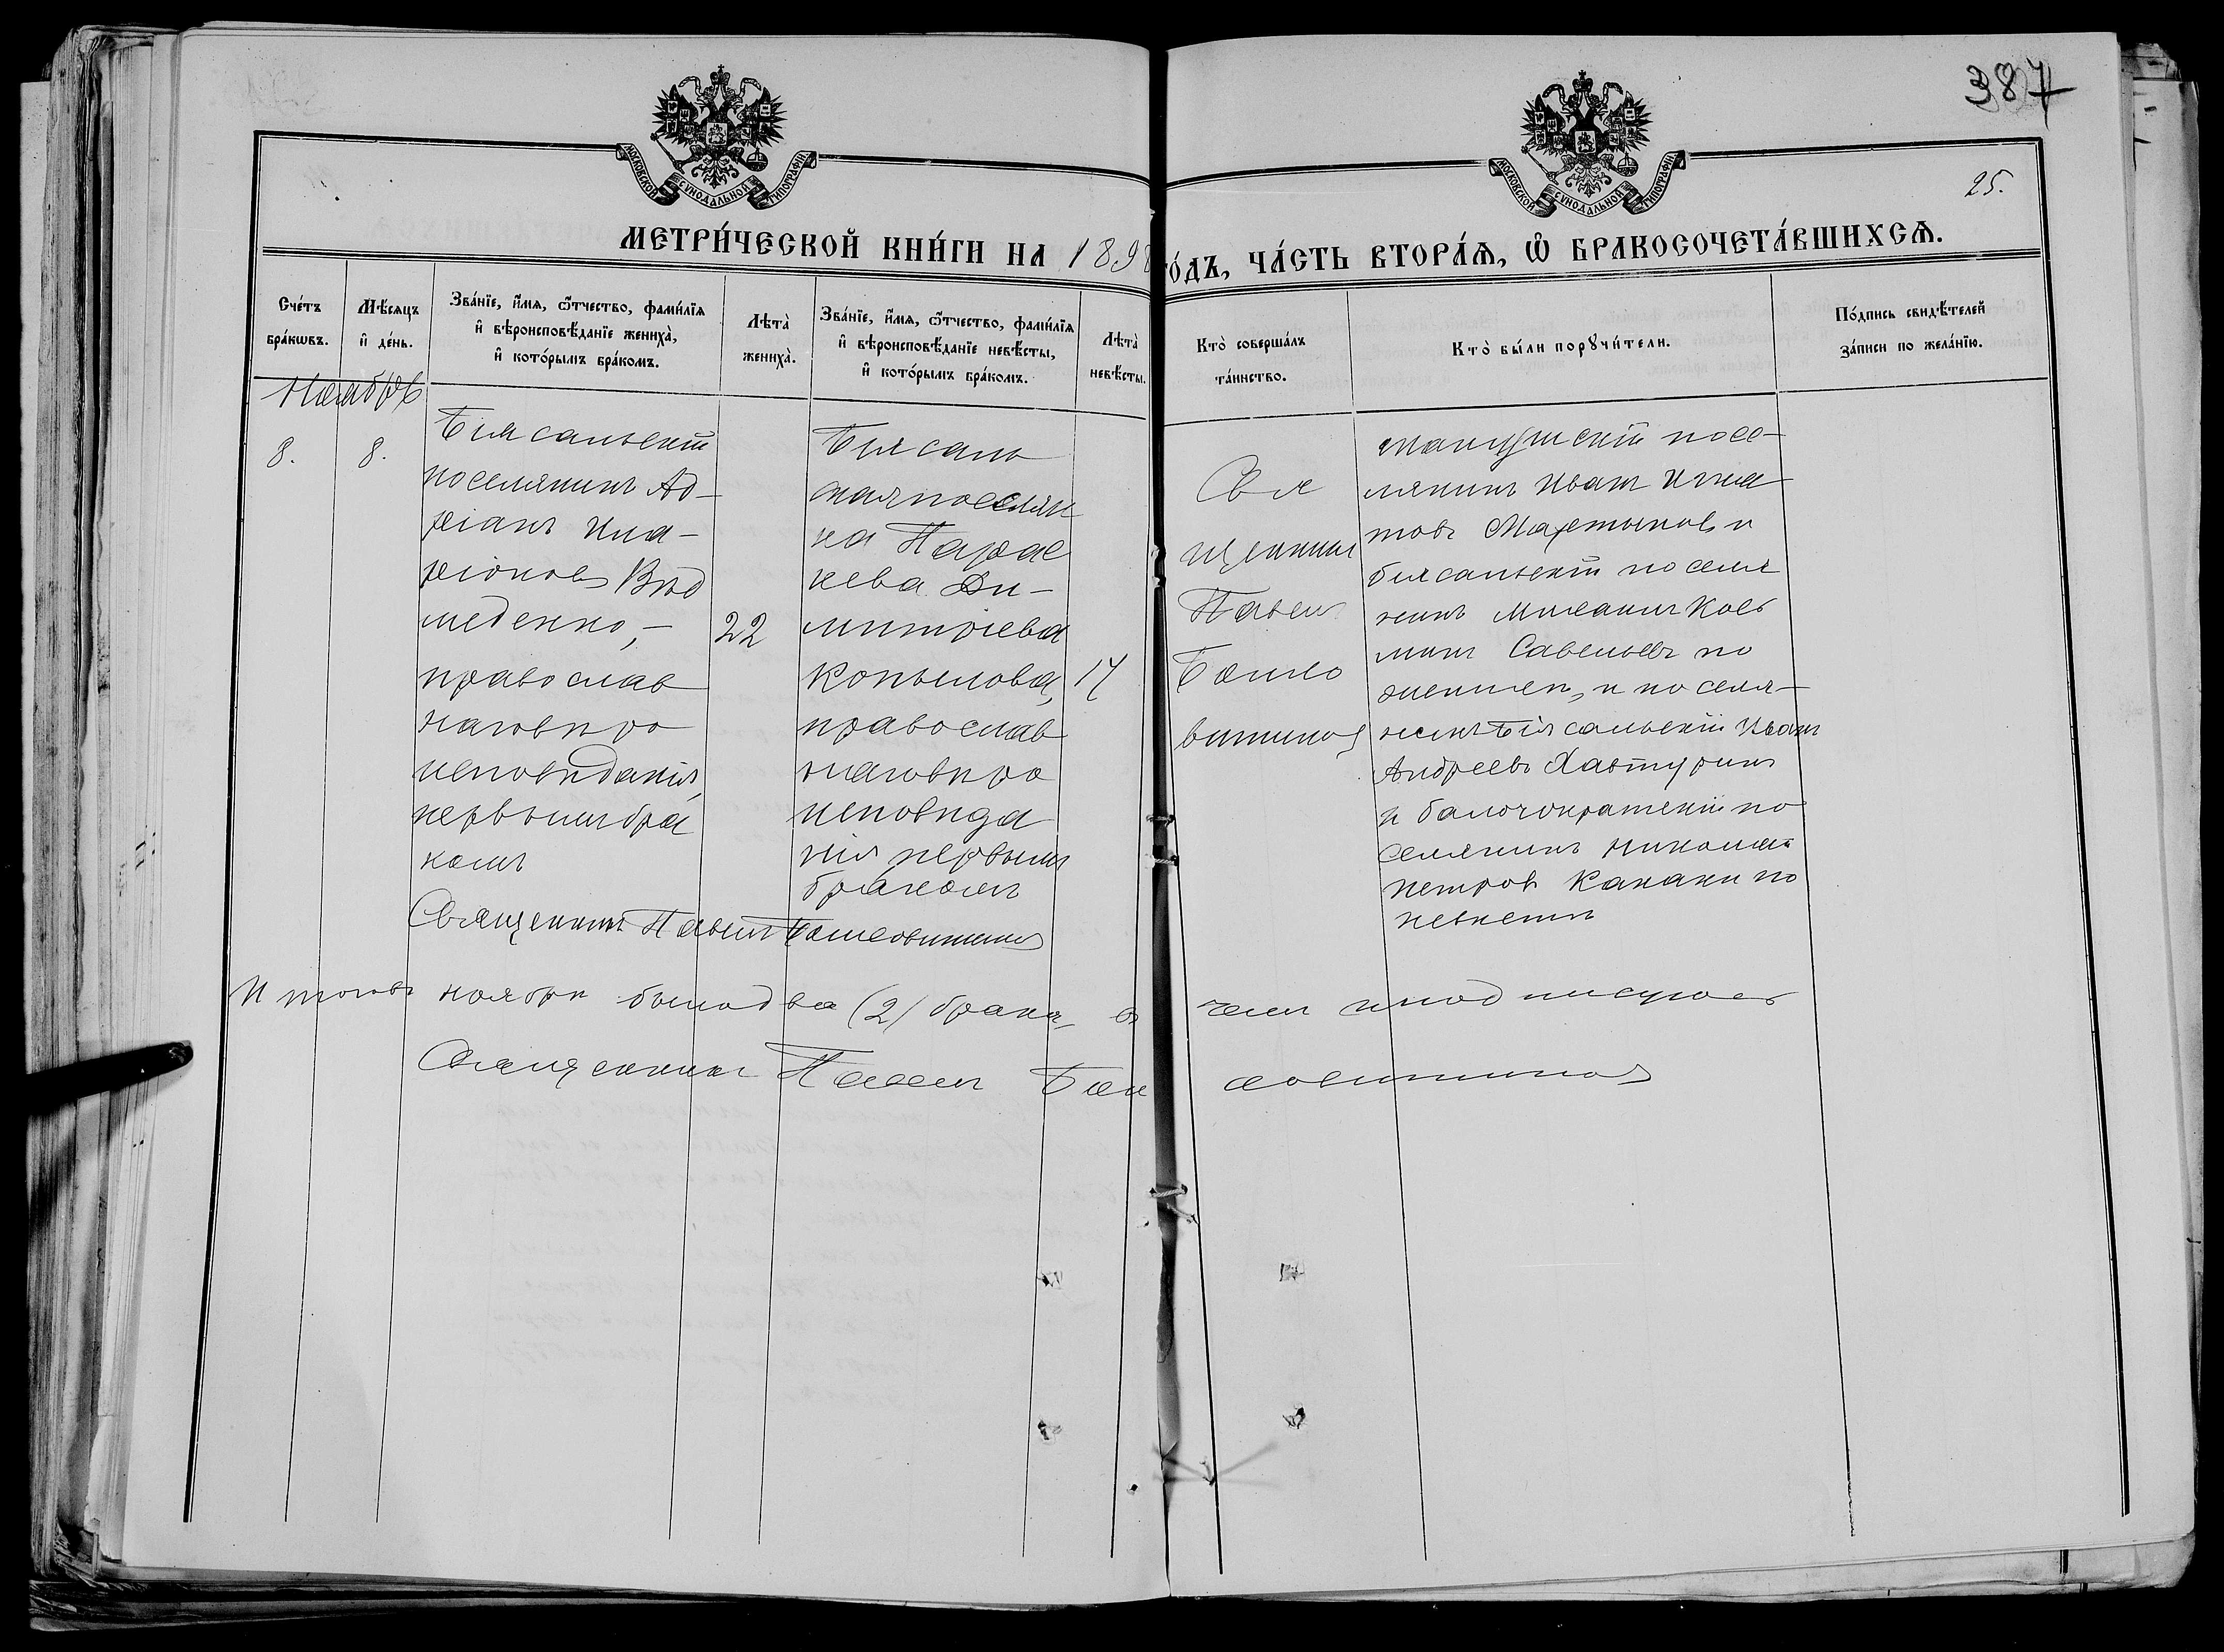 387
25.
МОСКОВСКОЙ СУНОДАЛЬНОЙ ТИПОГРАФІИ
МОСКОВСКОЙ СУНОДАЛЬНОЙ ТИПОГРАФІИ
МЕТРИ́ЧЕСКОЙ КНИ́ГИ НА 1898 го́дъ, ЧА́СТЬ ВТОРА́Я, Ѡ҆ БРАКОСОЧЕТА́ВШИХСЯ.
Сче́тъ бра́кѡвъ.
Мѣ́сяцъ и҆ де́нь.
Зва́нїе, и҆́мя, ѻ҆́тчество, фами́лїя и҆ вѣроисповѣ́данїе жениха̀, и҆ кото́рымъ бра́комъ.
Лѣта̀ жениха̀.
Зва́нїе, и҆́мя, ѻ҆́тчество, фами́лїя и҆ вѣроисповѣ́данїе невѣ́сты, и҆ кото́рымъ бра́комъ.
Лѣта̀ невѣ́сты.
Кто̀ соверша́лъ та́инство.
Кто̀ бы́ли порꙋчи́тели.
По́дпись свидѣ́телей за́писи по жела́нїю.
Ноябрь
8.
8.
Біясальскій
поселянинъ Ад-
ріанъ Ила-
ріоновъ
меденко,-
православ
наго вѣро
исповѣданія,
первымъ бра
комъ
22
Біясаль
ская поселян
ка Парас
кева Ди-
митріева
Копылова,
православ
наго вѣро
исповѣда
нія первымъ
бракомъ
17
Свя
щенникъ
Павелъ
Мангушскій посе-
лянинъ Иванъ Игна
товъ Мартыновъ и
біясальскій поселя
нинъ Михаилъ Кось
минъ Савельевъ по
женихѣ, и поселя-
нинъ Біясальскій Иванъ
Андреевъ Хавтуринъ
и по
селянинъ Николай
Петровъ Канаки по
невѣстѣ
Священникъ Павелъ
Итого въ ноябрѣ было два (2) брака, въ чемъ и подписуюсь
Священникъ Павелъ